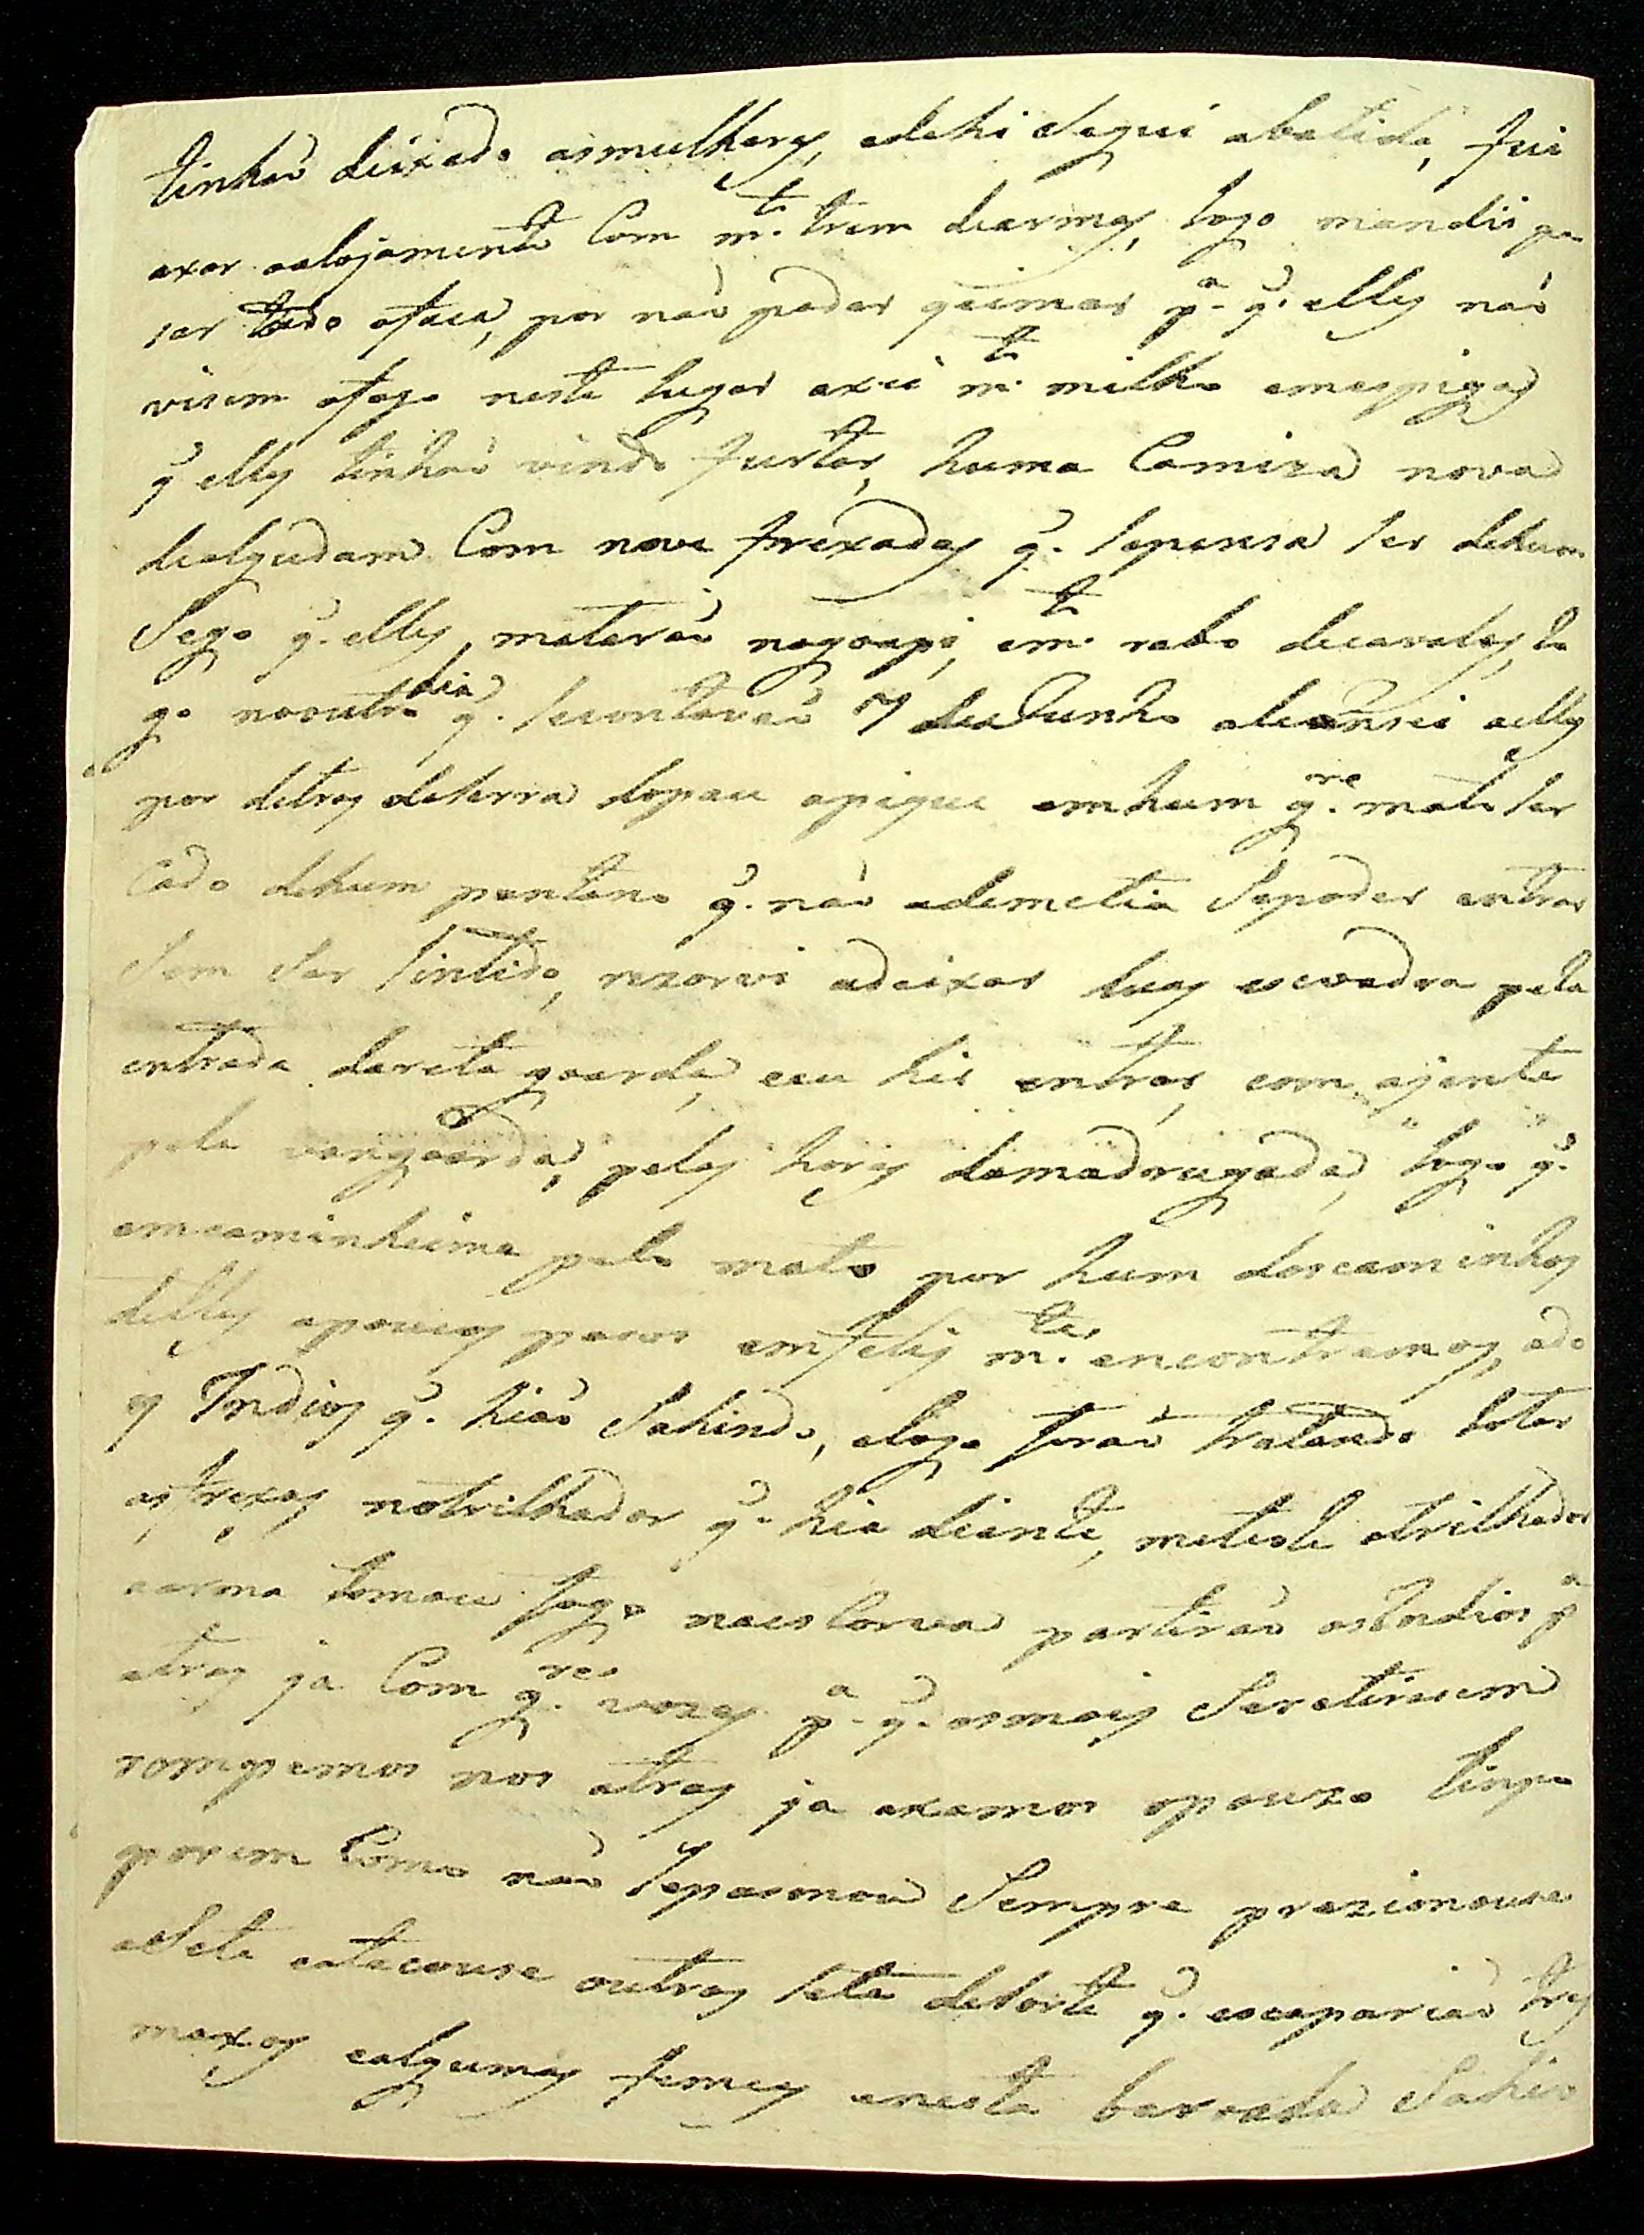 tinhaõ deixado asmulheres, edehi segui abatida, fui
axar oalojamento Com m.to trem dearmas, logo mandii pa
sar tudo afaca, por naõ poder queimar p.a q.̃ elles naõ
visem ofogo neste lugar axei m.to milho emespigas
q̃ elles tinhaõ vindo furtar, huma Camiza nova
dealgudam Com nove frexadas q.̃ sepensa ser dehum
Sego q.̃ elles mataraõ nagoapi, em.to rabo decavalos, lo
go nooutro dia q.̃ secontavaõ 7 deJunho alcansei aelles
por detras daserra dopau apique emhum g.re mato ser
Cado dehum pantano q.̃ naõ ademetia Sepoder entrar
Sem Ser Sintido, rezorvi adeixar huas escoadra pela
entrada dareta goarda, eeu hir entrar, com ajente
pela vangoarda, pelas horas damadrugada, logo q.̃
emcaminheime pelo mato por hum doscaminhos
delles apoucos pasos emfelis m.tes encontramos, ado
es Indios q.̃ hiaõ Sahindo, elogo foraõ tratando botar
asfrexas notrilhador q.̃ hia diante, metesle otrilhador
aarma tomou fogo naescorva partiraõ osIndios p.a
atras ja Com g.res vozes p.a q.̃ osmais Seretirasem
rompemos nos atras ja axamos opouzo linpo
porem Como naõ Sepasmou Sempre prezionouse
aSete eatacouse outros sete desorte q.̃ escapariaõ tres
maxos ealgumas femeas enesta baroada Sahio